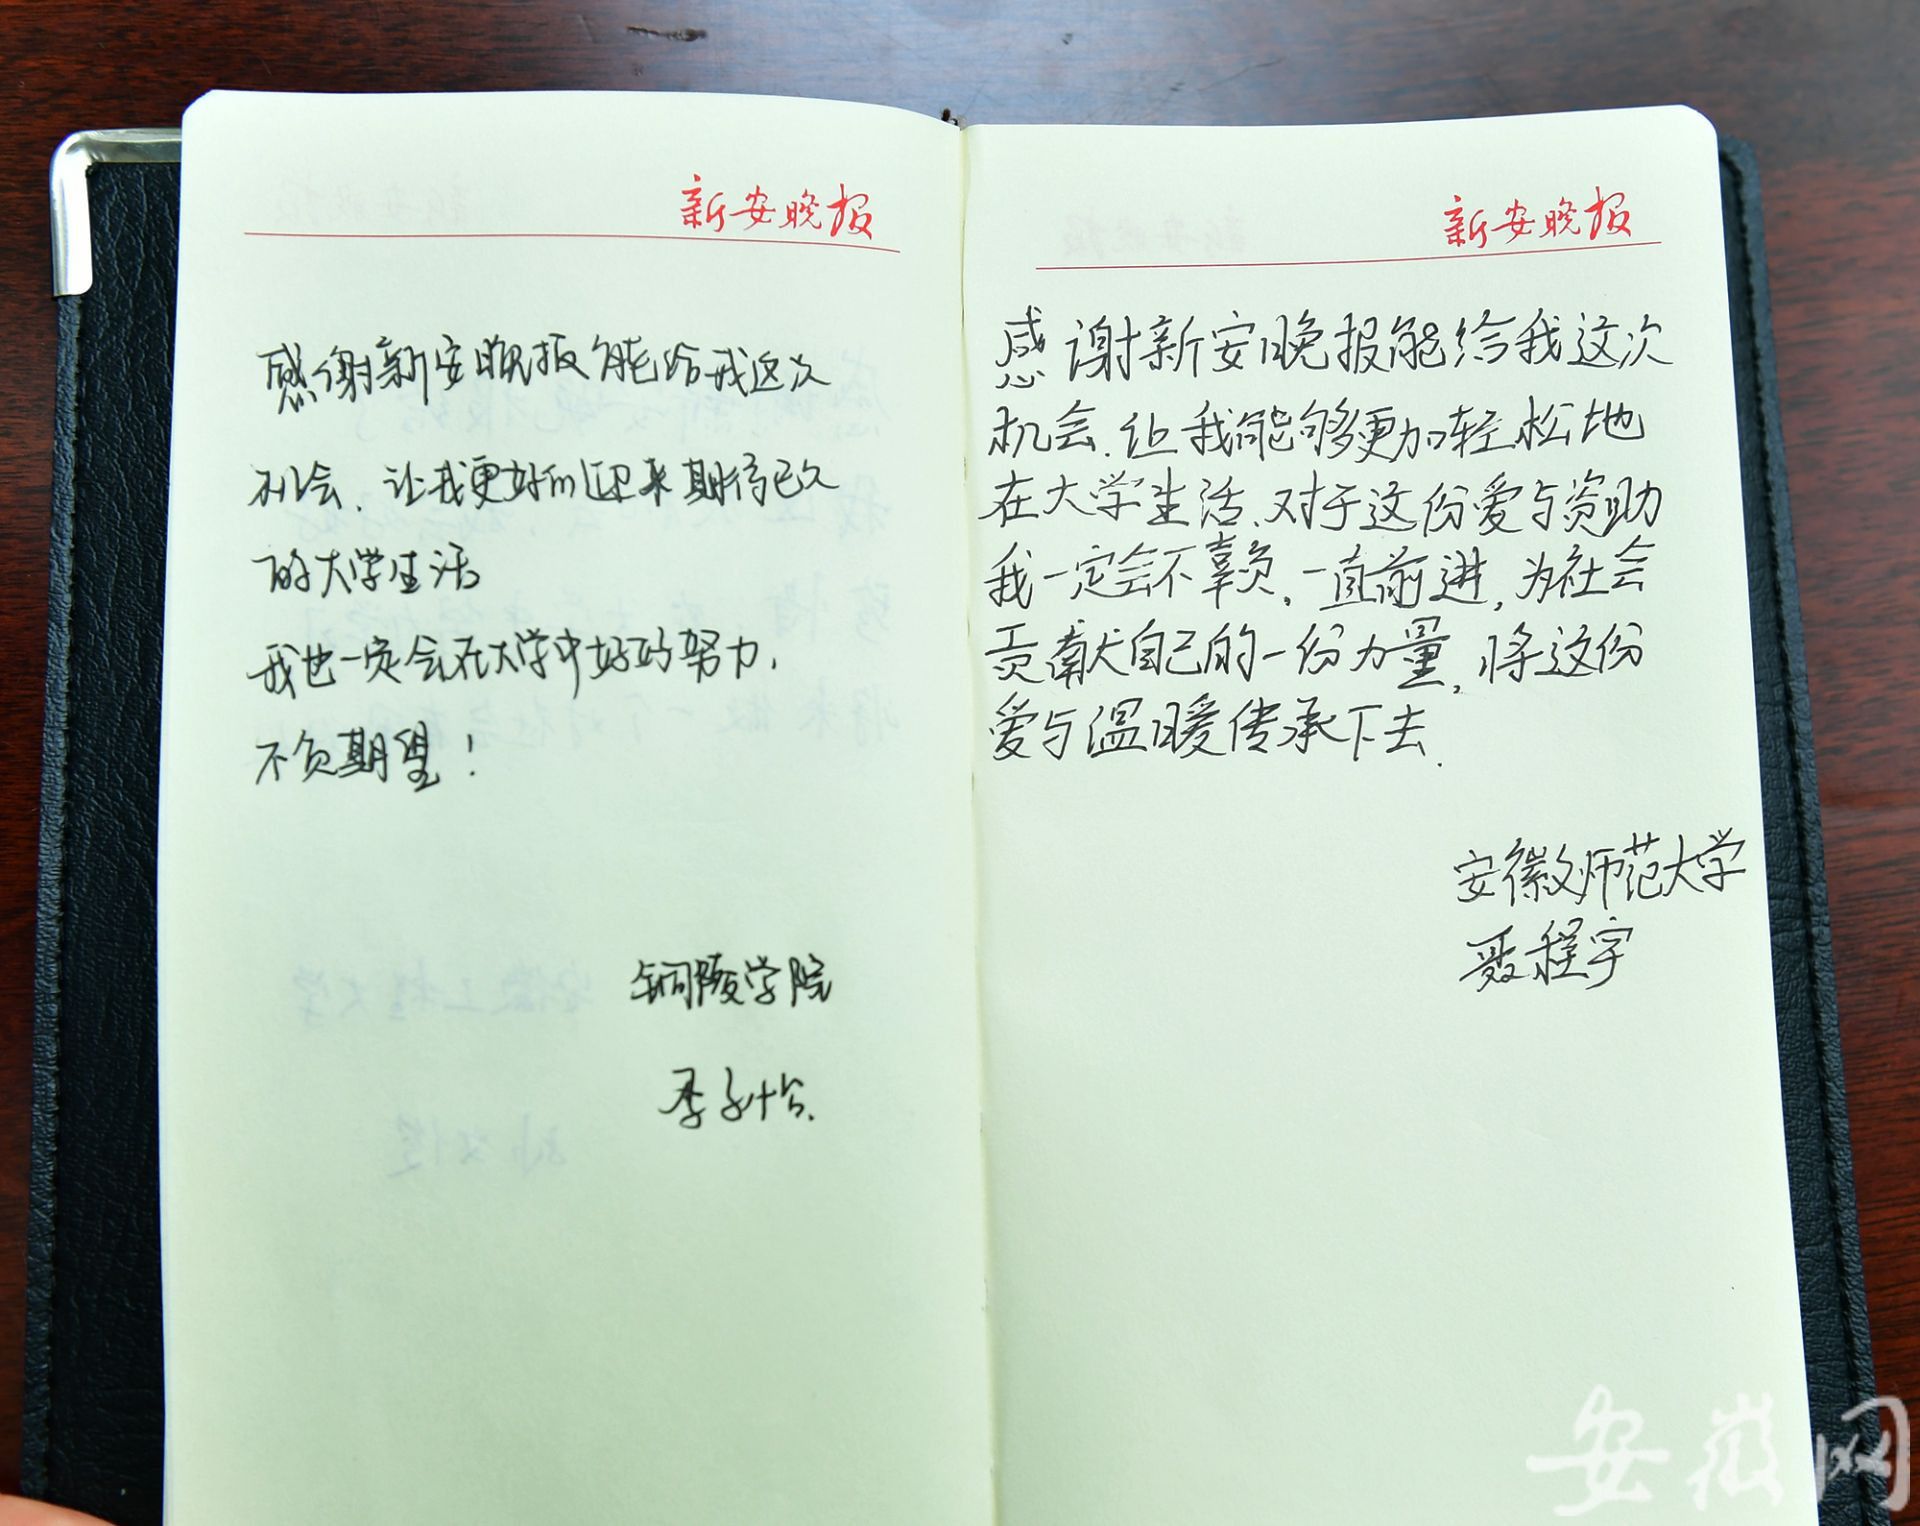 新安晚报
感谢新安晚报能给我这次
机会，让我更好的迎来期待已久
的大学生活
我也一定会在大学中好好努力，
不负期望！
铜陵学院
李子怡
新安晚报
感谢新安晚报能给我这次
机会，让我能够更加轻松地
在大学生活，对于这份爱与资助
我一定会不辜负，一直前进，为社会
贡献自己的一份力量，将这份
爱与温暖传承下去.
安徽师范大学
聂程宇
安徽网